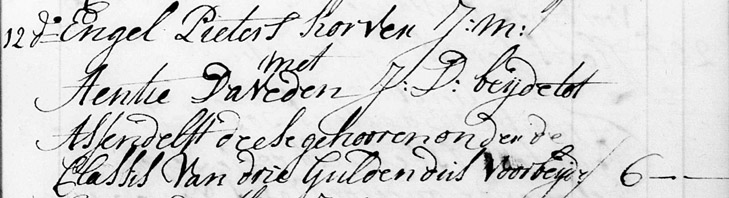 12 do Engel Pieters Korven J: m:
met
Aentie Daveden J: D: beijde tot
Assendelft deese gehooren onder de
Classis Van drie Gulden dus Voor beijde 6 —